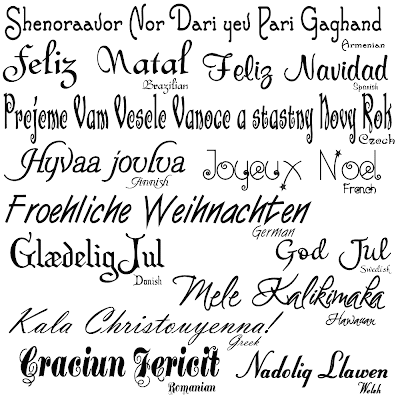 Shenoraavor Nor Dari yev Pari Gaghand
Armenian
Feliz Natal
Brazilian
Feliz Navidad
Spanish
Prejeme Vam Vesele Vanoce a stastny Novy Rok
Czech
Hyvaa joulua
Finnish
Joyeux Noel
French
Froehliche Weihnachten
German
Glædelig Jul
Danish
God Jul
Swedish
Mele Kalikimaka
Hawaiian
Kala Christouyenna!
Greek
Craciun Fericit
Romanian
Nadolig Llawen
Welsh